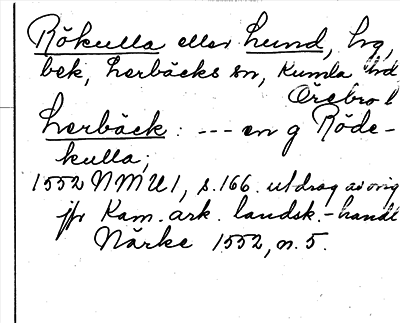 Rökulla eller hund, hg,
bek, Lerbäcks sn, Kumla hd
Örebro l
Lerbäck: --- en g Röde-
kulla;
1552 NMU1, s. 166. utdrag av orig
jfr Kam. ark. landsk.-handl
Närke 1552, n. 5.